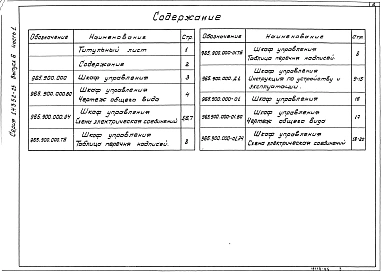 Содержание
Обозначение Наименование Стр.
Титульный лист 1
Содержание 2
965.900.000 Шкаф управления 3
965.900.000.ВО Шкаф управления 4
Чертеж общего вида
965.900.000.Э4 Шкаф управления
Схема электрическая соединений 5,6,7
965.900.000.ТБ Шкаф управления
Таблица перечня надписей. 8
Обозначение Наименование Стр.
Шкаф управления
Таблица перечня надписей. 8
965.900.000.Д2 Шкаф управления
Инструкция по устройству и 9-15
эксплуатации.
965.900.000-01 Шкаф управления 16
Шкаф управления 17
Чертеж общего вида
Шкаф управления
Схема электрическая соединений